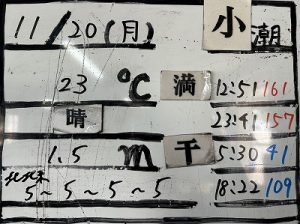 11/20(月) 小潮
23 ℃ 満 12:51 161
晴 23:41 157
1.5 m 干 5:30 41
北北東 5~5~5~5 18:22 109